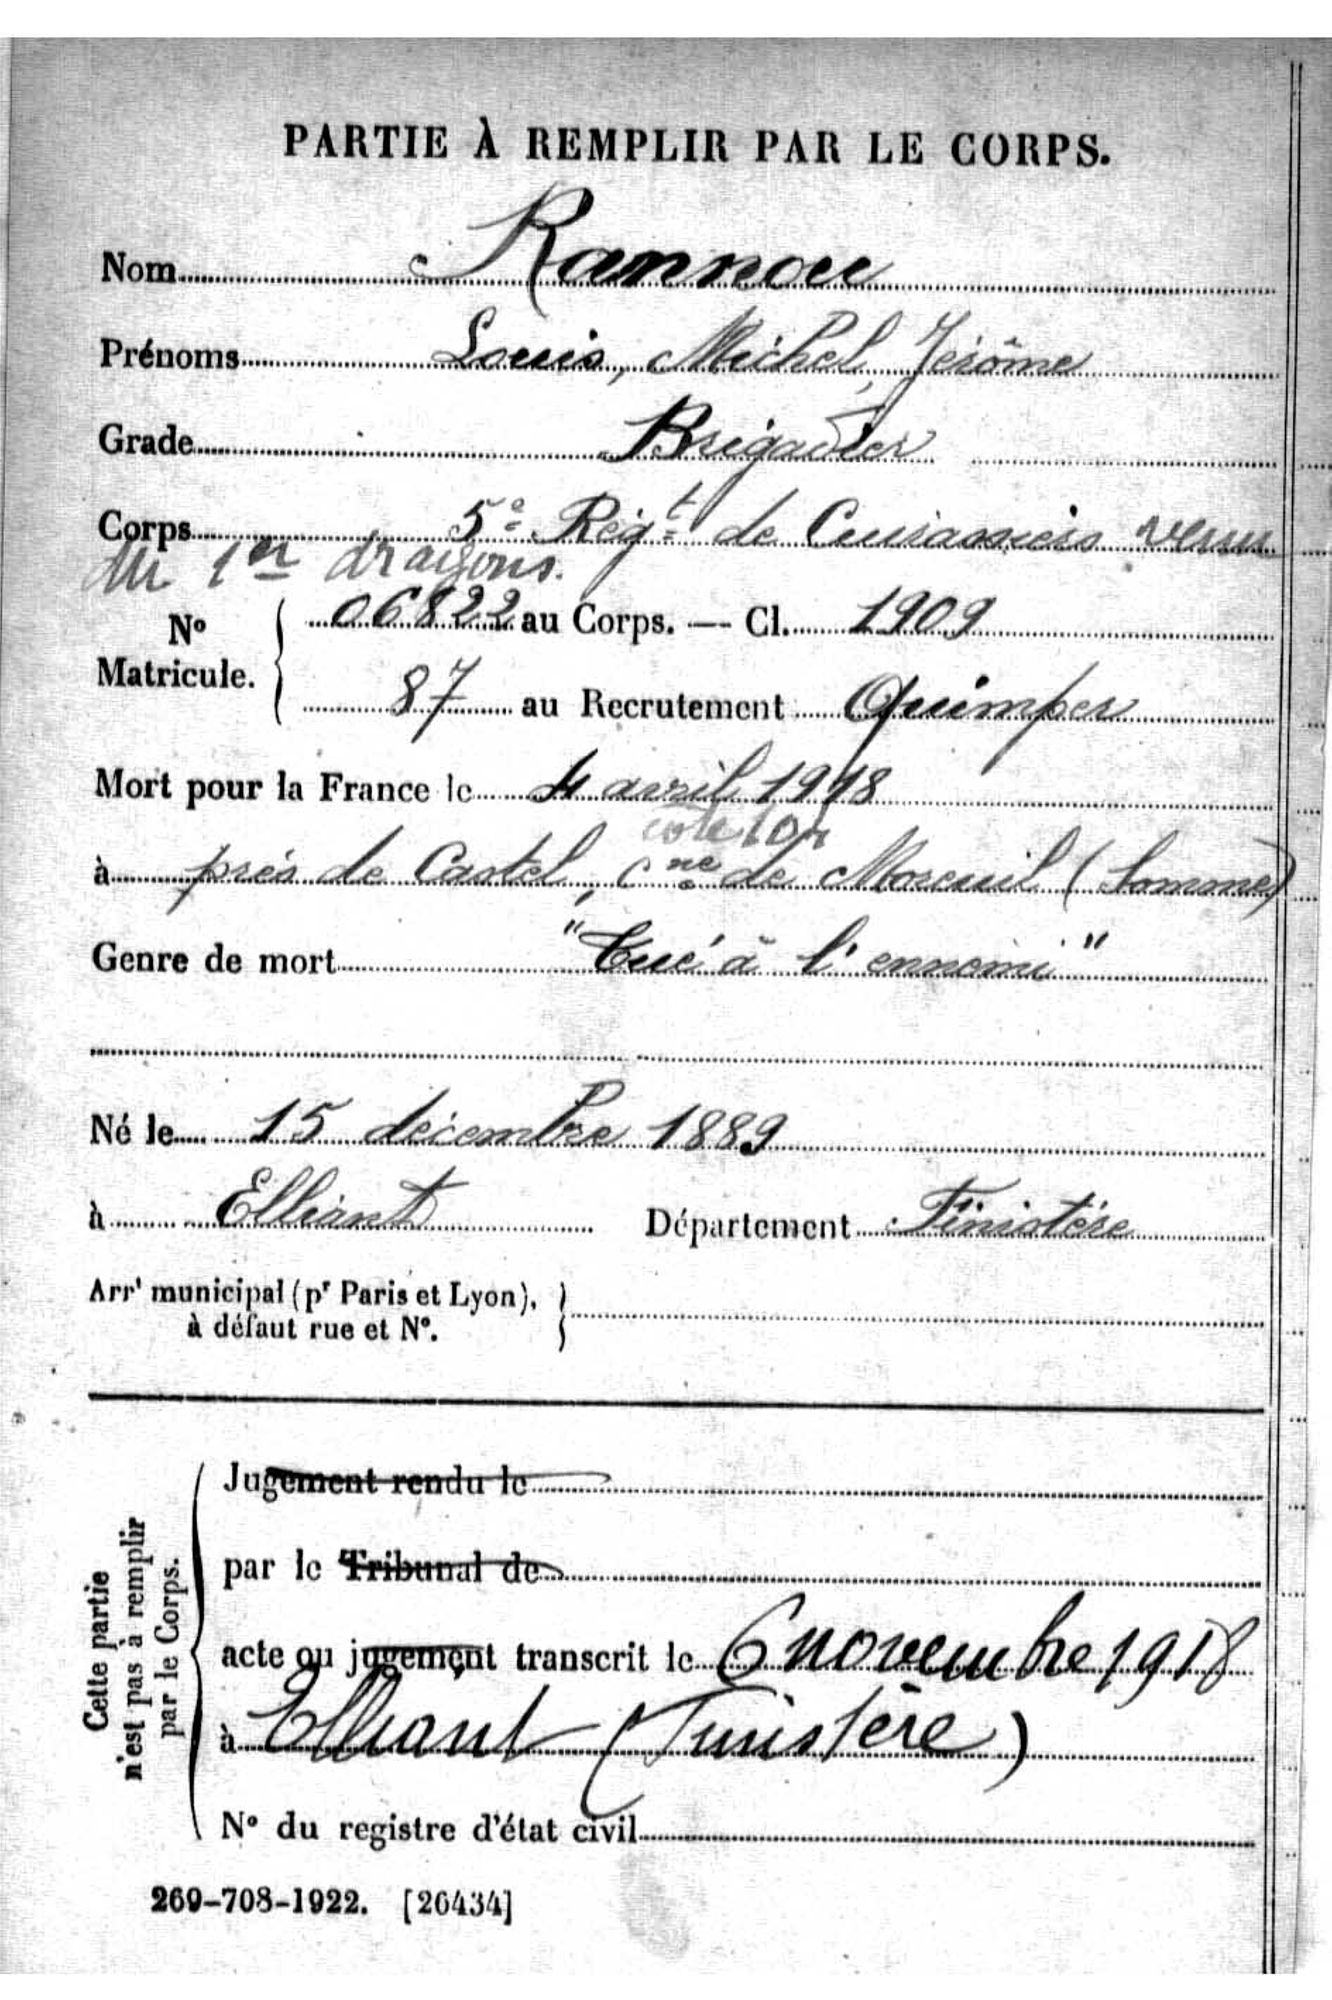 PARTIE À REMPLIR PAR LE CORPS.
Nom Rannou
Prénoms Louis, Michel, Jérôme
Grade Brigadier
Corps 5e Régt de Cuirassiers venu
du 1er dragons.
No Matricule. 06822 au Corps. — Cl. 1909
87 au Recrutement Quimper
Mort pour la France le 4 avril 1918
cote 104
à près de Castel, Cne de Moreuil (Somme)
Genre de mort "Tué à l'ennemi"
Né le 15 décembre 1889
à Elliant Département Finistère
Arrt municipal (pr Paris et Lyon),
à défaut rue et N°.
Cette partie
n'est pas à remplir
par le Corps.
Jugement rendu le
par le Tribunal de
acte ou jugement transcrit le 6 novembre 1918
à Elliant (Finistère)
N° du registre d'état civil
269-708-1922. [26434]